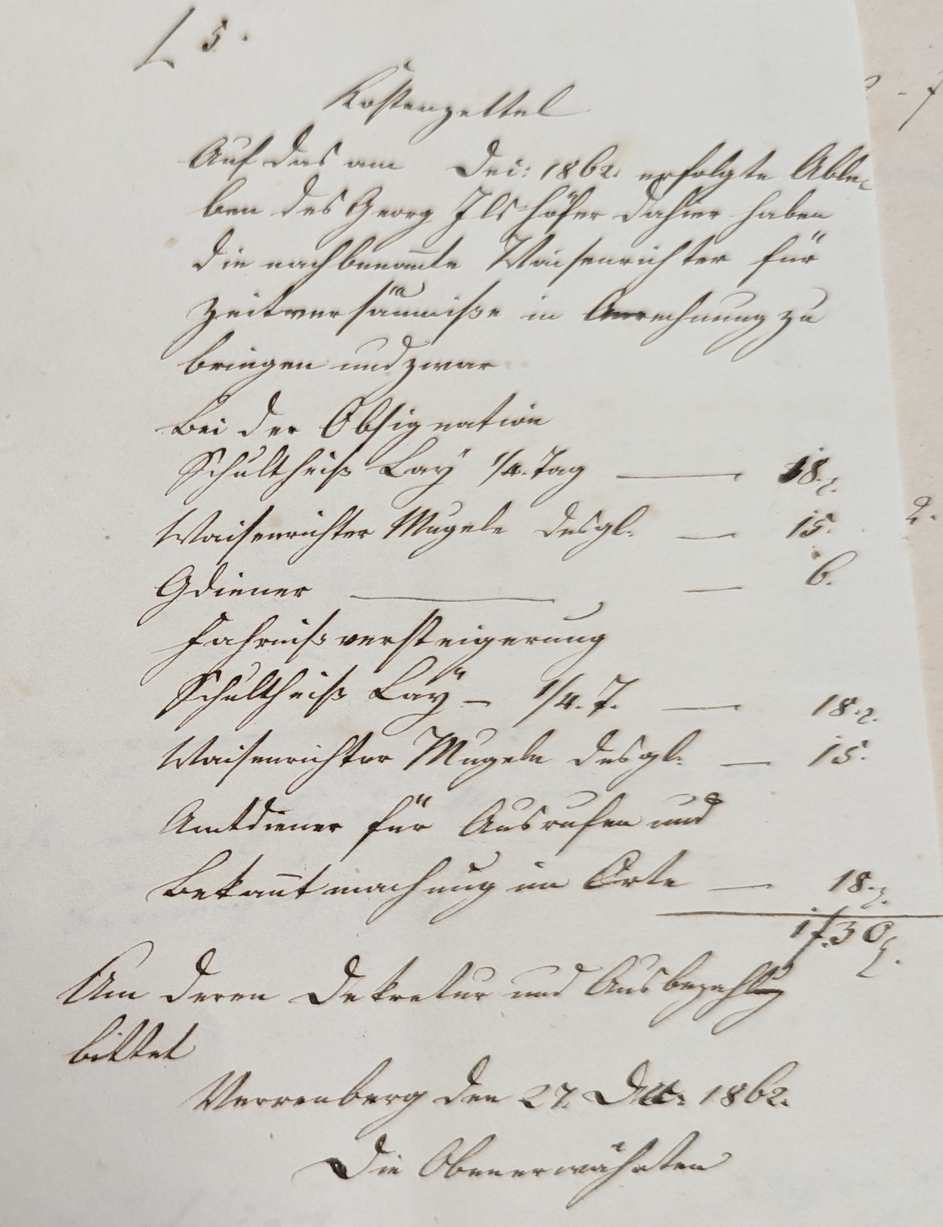 L 5.
Kostenzettel
Auf das am Dec: 1862. erfolgte Able-
ben des Georg Ilshöfer dahier haben
die nachbenannte Waisenrichter für
Zeitversäumniße in Anrechnung zu
bringen und zwar
Bei der Obsignation
Schultheiß Lay 1/4. Tag — 18.
Waisenrichter Mugele desgl. — 15.
Gdiener — 6.
Fahrnißversteigerung
Schultheiß Lay — 1/4. T. — 18.
Waisenrichter Mugele desgl. — 15.
Amtdiener für Ausrufen und
Bekanntmachung im Orte — 18.
1 f. 30
Um deren Dekretur und Ausbezahlg
bittet
Verrenberg den 27. Dec: 1862.
Die Obenerwähnten